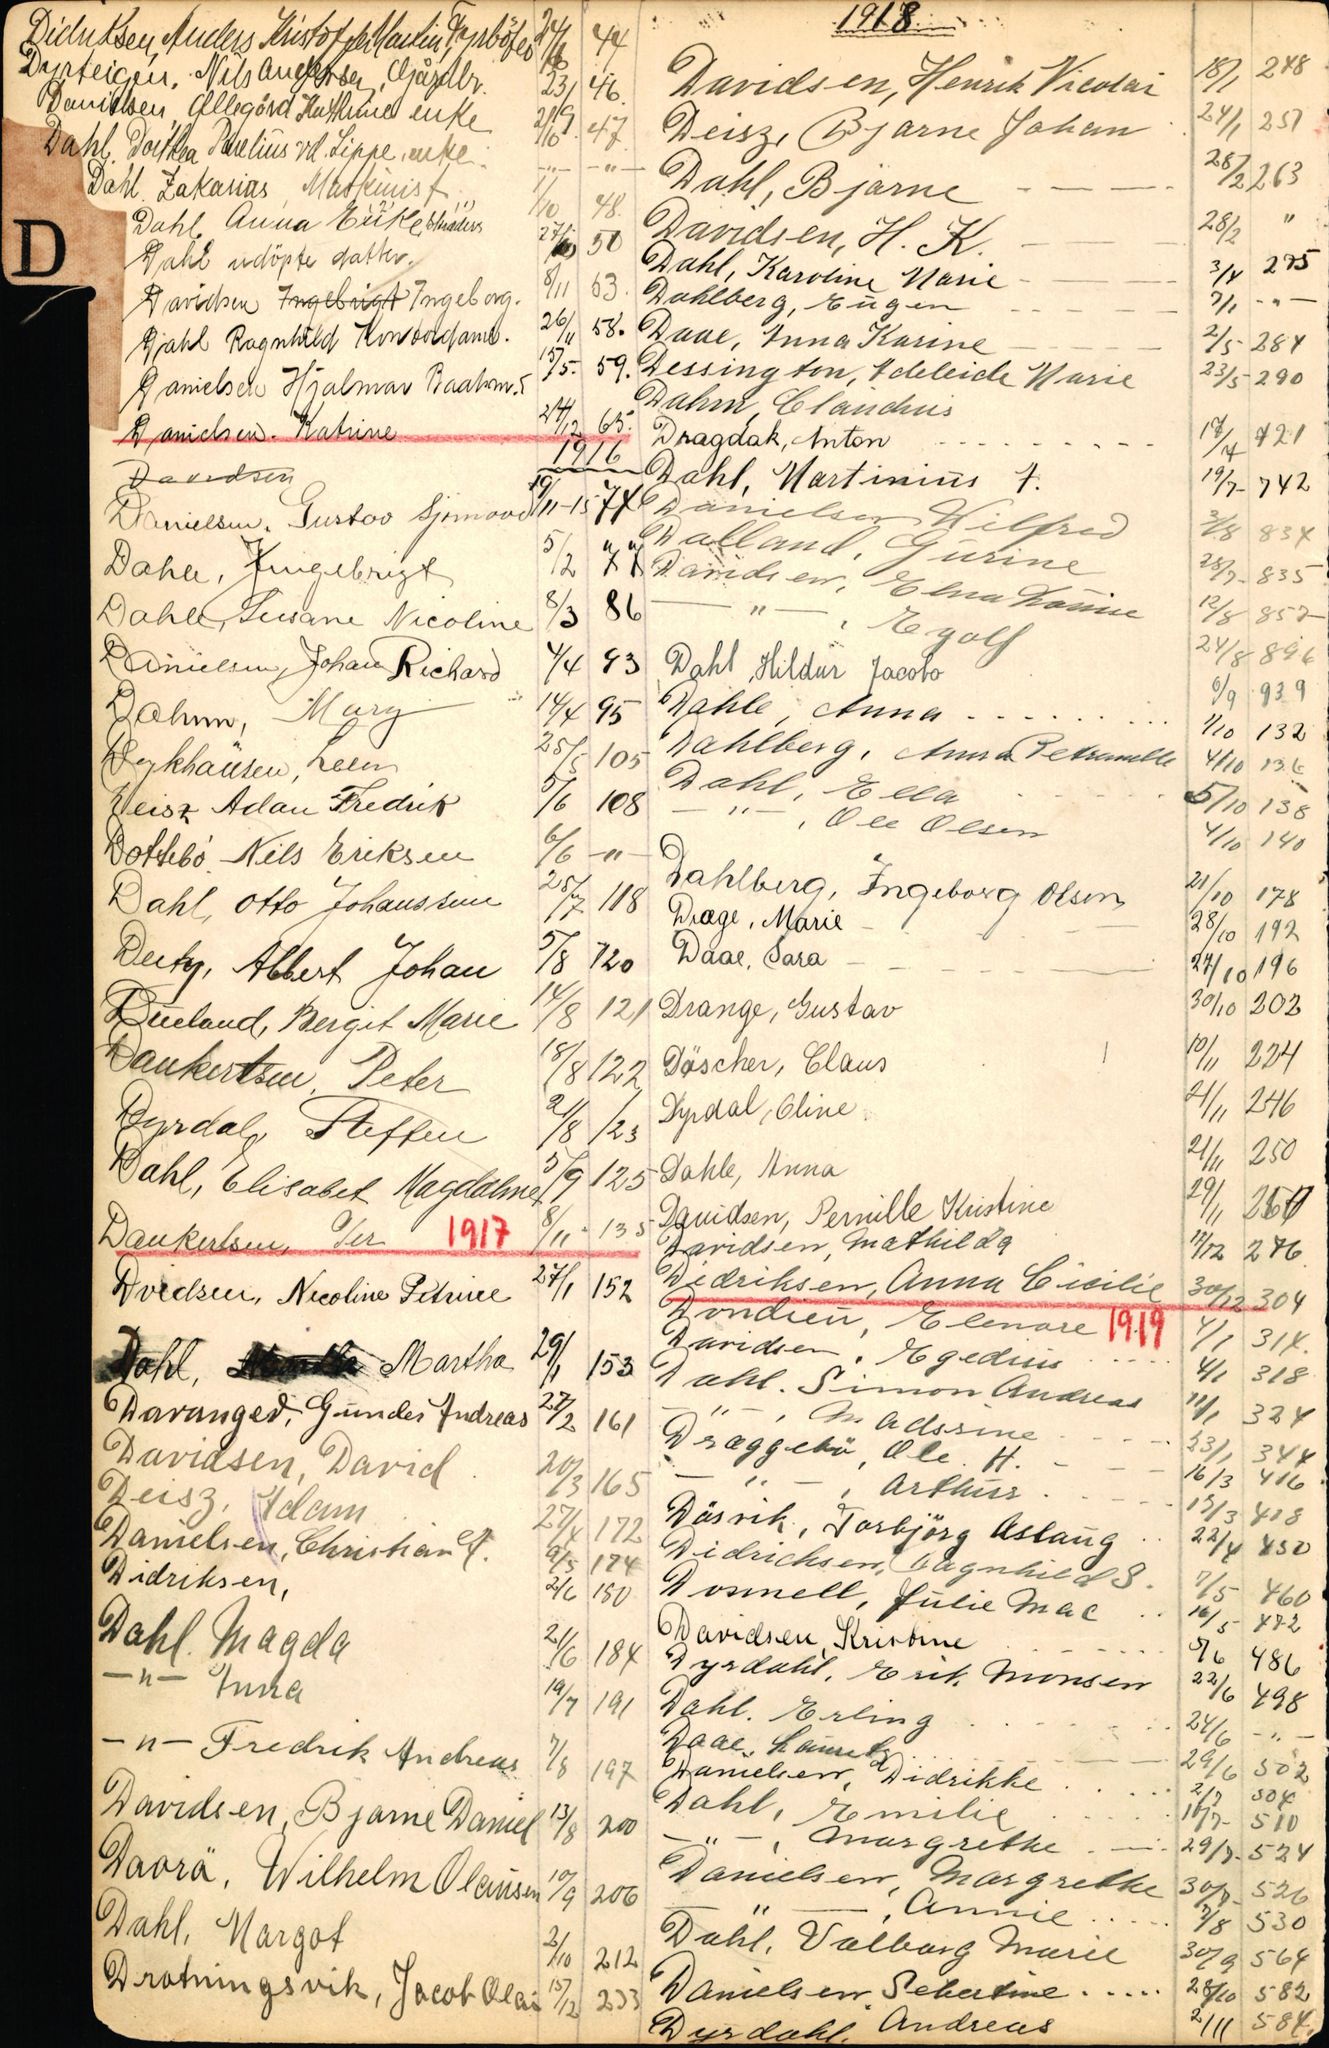 Didriksen, Anders Kristoffer Martin, Fyrböter 24/8 44
Dyrteigen, Nils Andersen, Gårdbr. 23/ 46
Danielsen, Allegörd Kathrine enke 47
Dahl, Dorthea Paulius vd. Lippe, enke -"- -"-
Dahl Zakarias, Maskinist 1/10 48
Dahl Anna Enke 50
Dahl udöpte datter.
Davidsen Ingebrigt Ingeborg. 8/11 53.
Djahl Ragnhild Kontordame. 26/11 58.
Danielsen Hjalmar Baatsm. 15/5. 59.
Danielsen. Katrine 24/12 65.
1916
Davidsen
Danielsen, Gustav Sjomand 19/11-15 74
Dahle, Ingebrigt 5/2 77
Dahle, Susane Nicoline 8/3 86
Danielsen, Johan Richard 4/4 93
Dahm, Mary 14/4 95
Dykhausen, Leen 25/5 105
Deisz Adan Fredrik 5/6 108
Dottebö Nils Eriksen 6/6 -"-
Dahl, Otto Johanssen 25/7 118
Deity, Albert Johan 5/8 120
Dueland, Bergit Marie 14/8 121
Dankertsen, Peter 18/8 122
Dyrdal, Steffen 21/8 123
Dahl, Elisabet Magdalene 5/9 125
Dankertsen, Per 1917 8/11 135
Dvidsen, Nicoline Petrine 27/1 152
Dahl, Martha 29/1 153
Davanger, Gunder Andreas 27/2 161
Davidsen, David 20/3 165
Deisz, Adam 27/4 172
Danielsen, Christian A. 9/5 174
Didriksen, 2/6 180
Dahl. Magda 21/6 184
-"- Anna 19/7 191
-"- Fredrik Andreas 7/8 197
Davidsen, Bjarne Daniel 13/8 200
Daorä, Wilhelm Olausen 10/9 206
Dahl, Margot 2/10 212
Drotningsvik, Jacob Olai 15/12 233
D
1918
Davidsen, Henrik Nicolai 18/1 248
Deisz, Bjarne Johan 24/1 251
Dahl, Bjarne 28/2 263
Davidsen, H. K. 28/2 "
Dahl, Karoline Marie 3/4 275
Dahlberg, Eugen 7/1 -"-
Daae, Anna Karine 2/5 284
Dessington, Adeleide Marie 23/5 290
Dahm, Claudius
Dragdak, Anton 17/4 421
Dahl, Martinius A. 19/7 742
Danielsen Wilfred 3/8 834
Dalland, Gurine 28/7 835
Davidsen, Elna 12/8 857
-"-, Egolf 24/8 896
Dahl, Hildur Jacobo 6/9 939
Dahle, Anna 1/10 132
Dahlberg, Anna Petranelle 4/10 136
Dahl, Ella 5/10 138
-"-, Ole Olsen 4/10 140
Dahlberg, Ingeborg Olsen 21/10 178
Drage, Marie 28/10 192
Daae, Sara 27/10 196
Drange, Gustav 30/10 202
Döscher, Claus 10/11 224
Dyrdal, Oline 21/11 246
Dahle, Anna 21/11 250
Davidsen, Pernille Kristine 29/11 267
Davidsen, Mathilda 17/12 276
Didriksen, Anna Cicilie 30/12 304
Elenore 1919 4/1 314.
Davidsen, Egedius 4/1 318
Dahl. Simon Andreas 11/1 324
-"-, Madsrine 23/1 344
Dræggebö, Ole H. 16/3 416
-"-, Arthur 17/3 418
Dösvik, Torbjörg Aslaug 22/4 450
Didrichsen, Dagnhild S. 7/5 460
Dosmell, Julie Mac 16/5 472
Davidsen, Kristine 5/6 486
Dyrdahl, Erik Monsen 22/6 498
Dahl. Erling 24/6 -"-
Daae, Lauritz 29/6 502
Danielsen, Didrikke 2/7 504
Dahl, Emilie 16/7 510
-"-, Margrethe 29/7 524
Danielsen, Margrethe 30/7 526
-"-, Annie 7/8 530
Dahl, Valborg Marie 30/9 564
Danielsen Sebertine 28/10 582
Dyrdahl, Andreas 2/11 584.